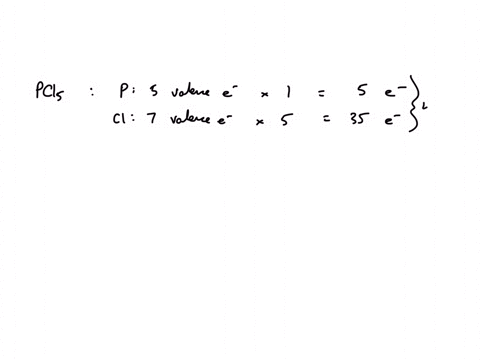 PCl5 : P: 5 valence e- × 1 = 5 e-
Cl: 7 valence e- × 5 = 35 e-